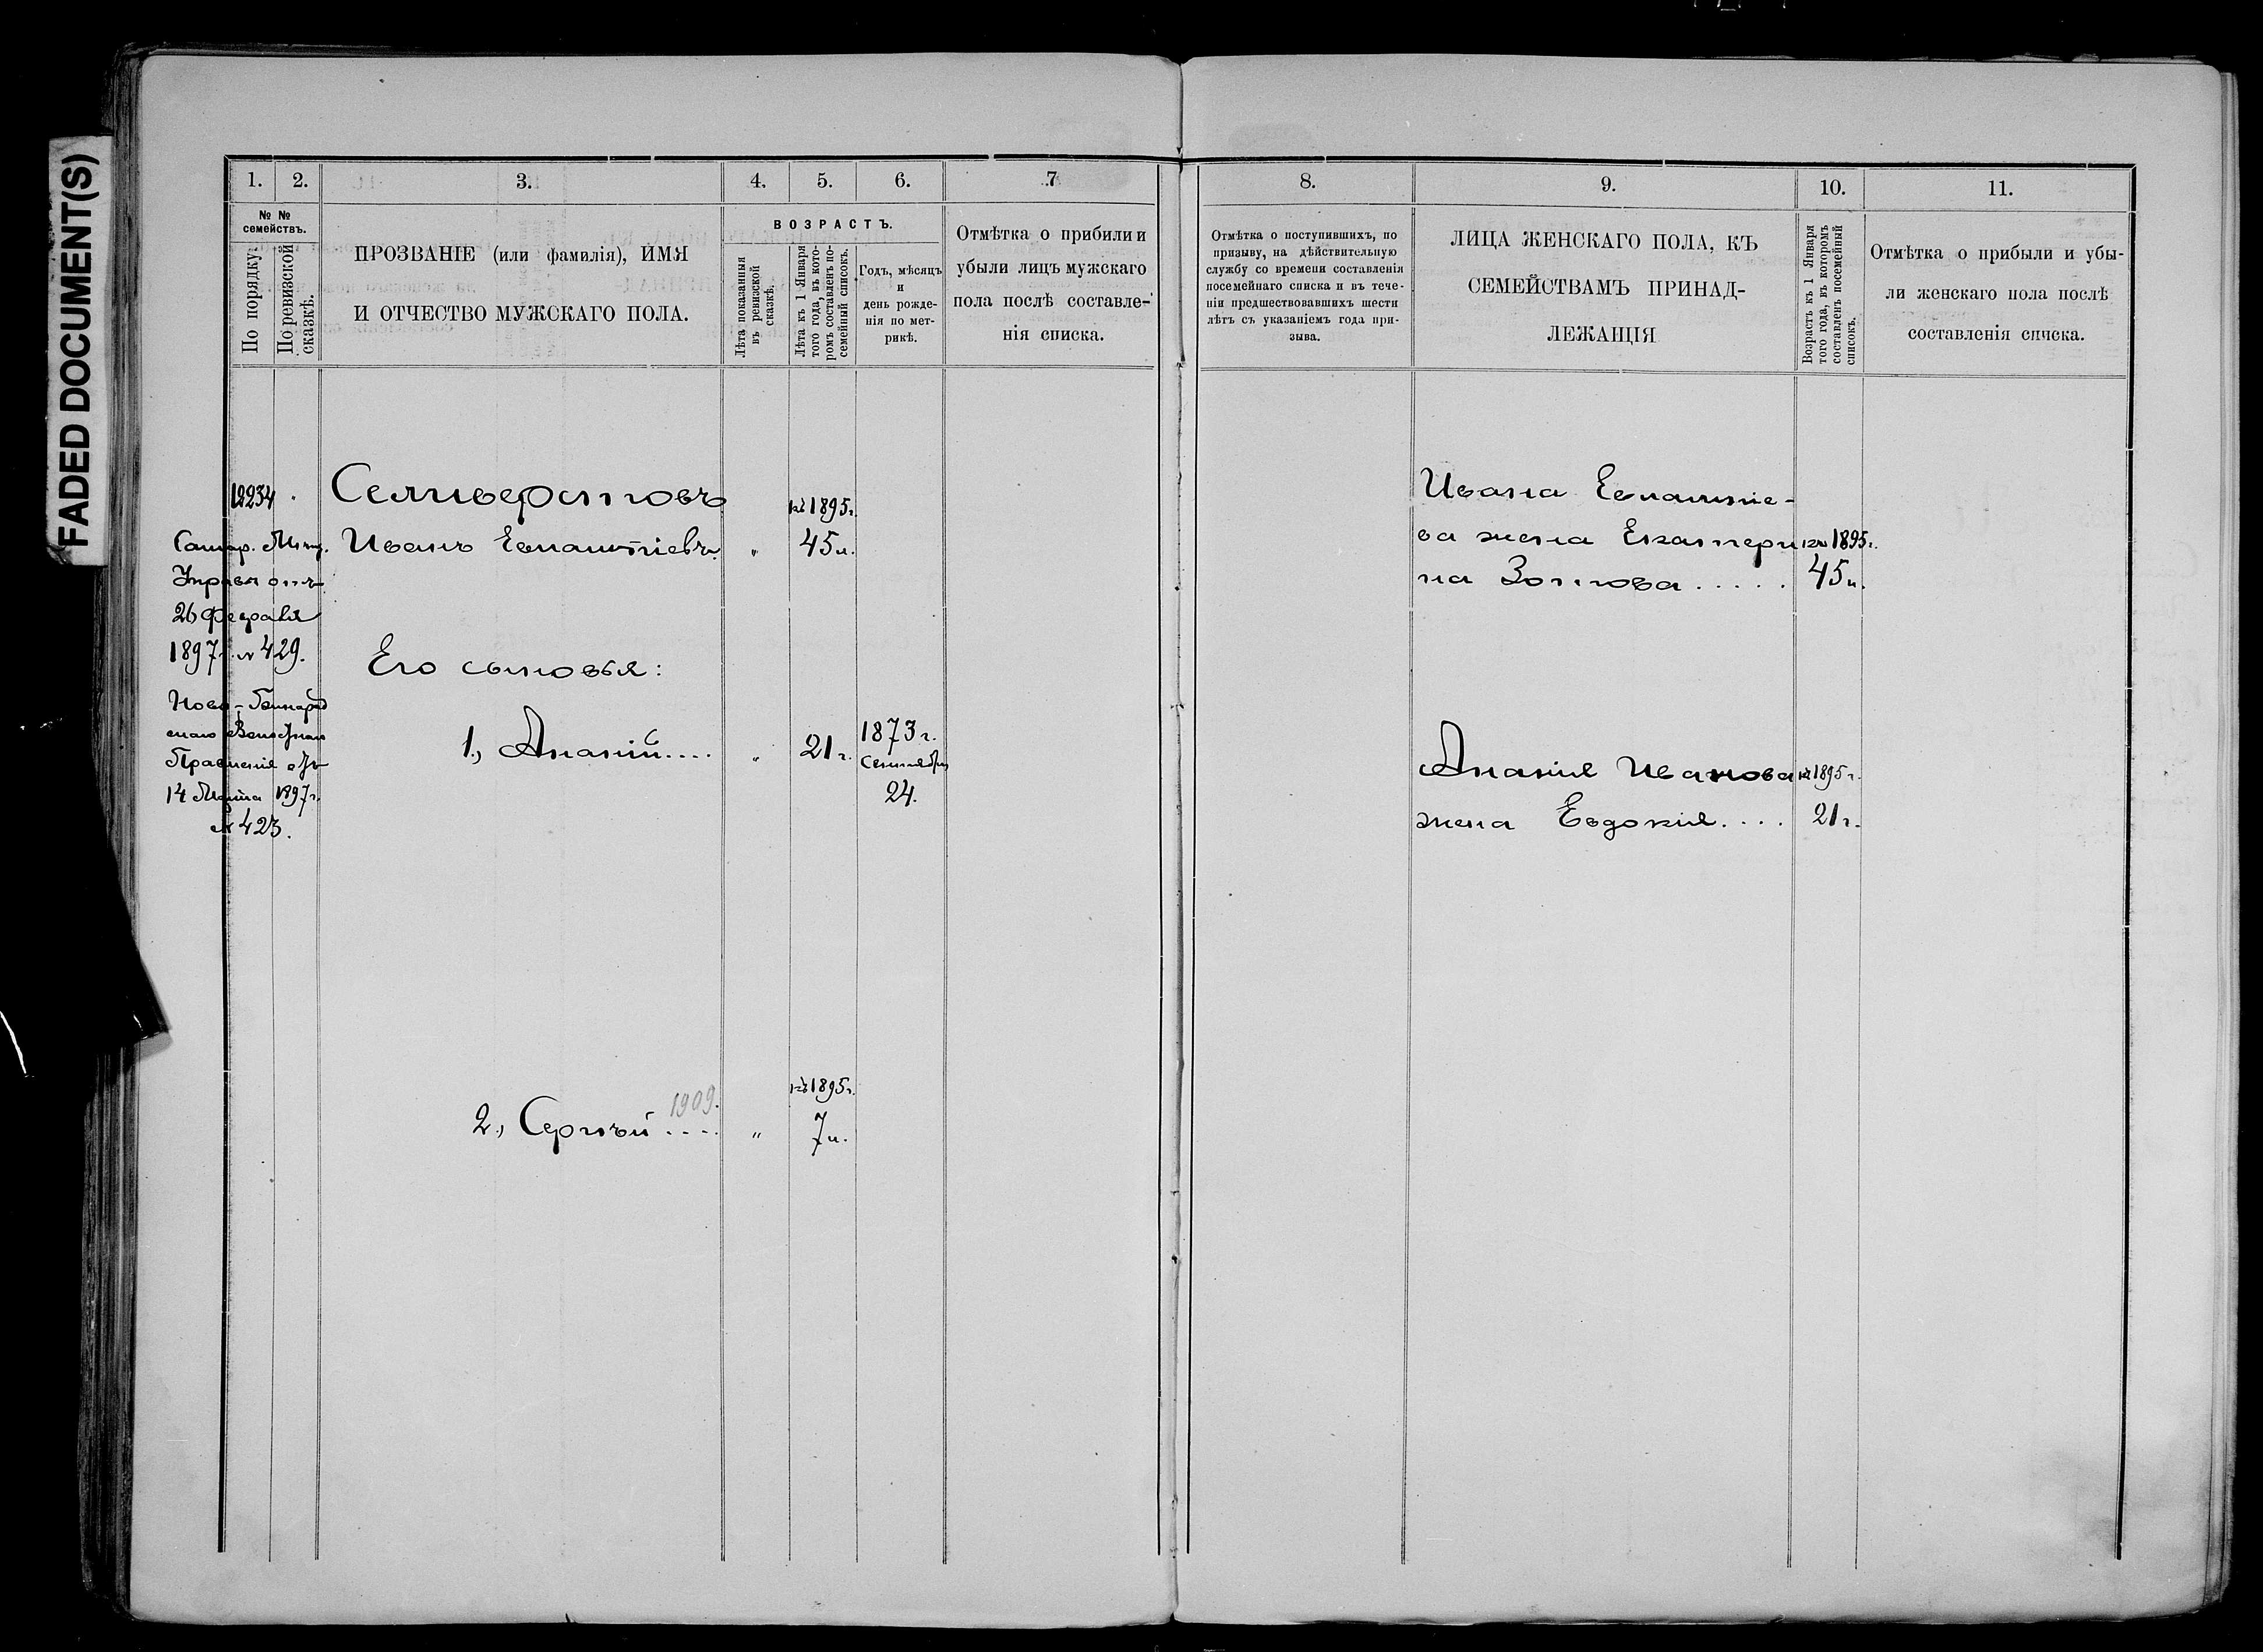 FADED DOCUMENT(S)
1. 2. 3. 4. 5. 6. 7
№ №
семействъ.
По порядку.
По ревизской
сказкѣ.
ПРОЗВАНІЕ (или фамилія), ИМЯ
И ОТЧЕСТВО МУЖСКАГО ПОЛА.
ВОЗРАСТЪ.
Лѣта показанныя
въ ревизской
сказкѣ.
Лѣта къ 1 Января
того года, въ кото-
ромъ составленъ по-
семейный списокъ.
Годъ, мѣсяцъ
и
день рожде-
нія по мет-
рикѣ.
Отмѣтка о прибили и
убыли лицъ мужскаго
пола послѣ составле-
нія списка.
12234
Селиверстовъ
къ 1895 г.
Самар. Мѣщ.
Управы отъ
26 Февраля
1897 г. № 429.
Иванъ Евпатіевъ
„
45 л.
Его сыновья:
Правленія отъ
14 Марта 1897 г.
№ 423.
1., Ананій....
„
21 г.
1873 г.
Сентября
24.
къ 1895 г.
1909.
2., Сергѣй ....
„
7 л.
8. 9. 10. 11.
Отмѣтка о поступившихъ, по
призыву, на дѣйствительную
службу со времени составленія
посемейнаго списка и въ тече-
ніи предшествовавшихъ шести
лѣтъ съ указаніемъ года при-
зыва.
ЛИЦА ЖЕНСКАГО ПОЛА, КЪ
СЕМЕЙСТВАМЪ ПРИНАД-
ЛЕЖАЩІЯ
Возрастъ къ 1 Января
того года, въ которомъ
составленъ посемейный
списокъ.
Отмѣтка о прибыли и убы-
ли женскаго пола послѣ
составленія списка.
Ивана Евпатіе-
ва жена Екатери
къ 1895 г.
на Зотова.....
45 л.
Ананія Иванова
къ 1895 г.
жена Евдокія....
21 г.